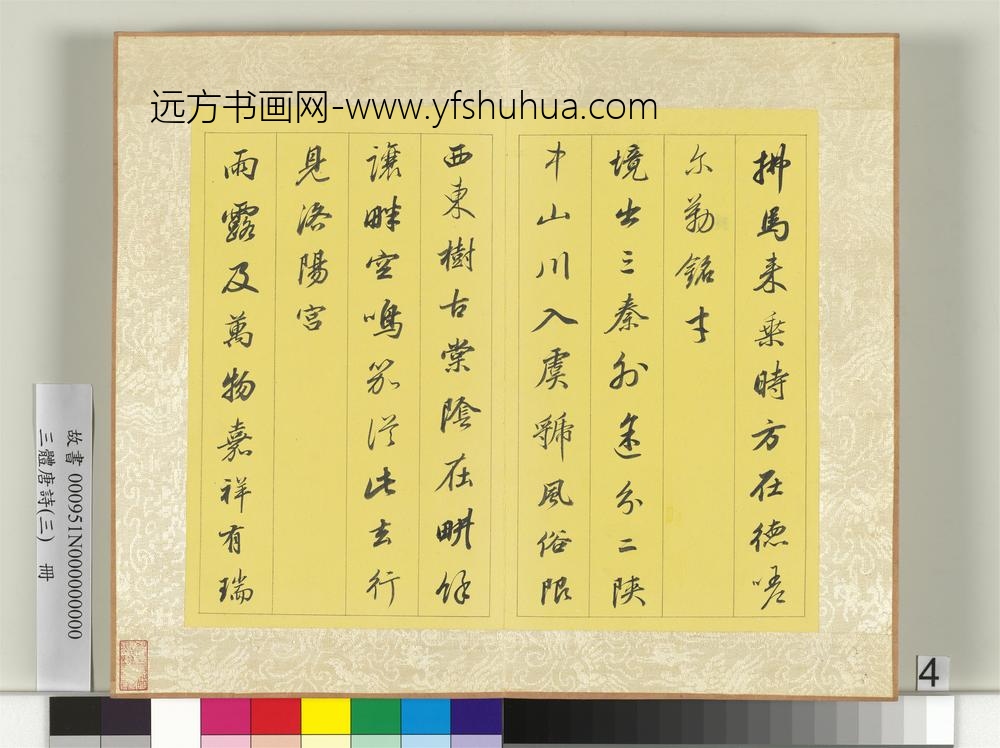 远方书画网-www.yfshuhua.com
拂馬来乘時方在德嗟
尔勒銘才
境出三秦外途分二陝
中山川入虞虢風俗限
西東樹古棠陰在畊餘
讓畔空鳴笳從此去行
見洛陽宫
雨露及萬物嘉祥有瑞
故書 000951N000000000
三體唐詩(三) 冊
4